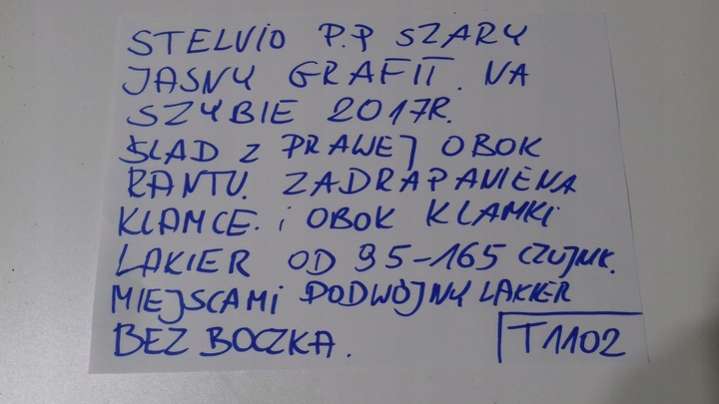 STELVIO P.P SZARY
JASNY GRAFIT. NA
SZYBIE 2017R.
ŚLAD Z PRAWEJ OBOK
RANTU. ZADRAPANIENA
KLAMCE. i OBOK KLAMKI
LAKIER OD 95-165 CZUJNIK.
MIEJSCAMI PODWÓJNY LAKIER
BEZ BOCZKA.
T1102